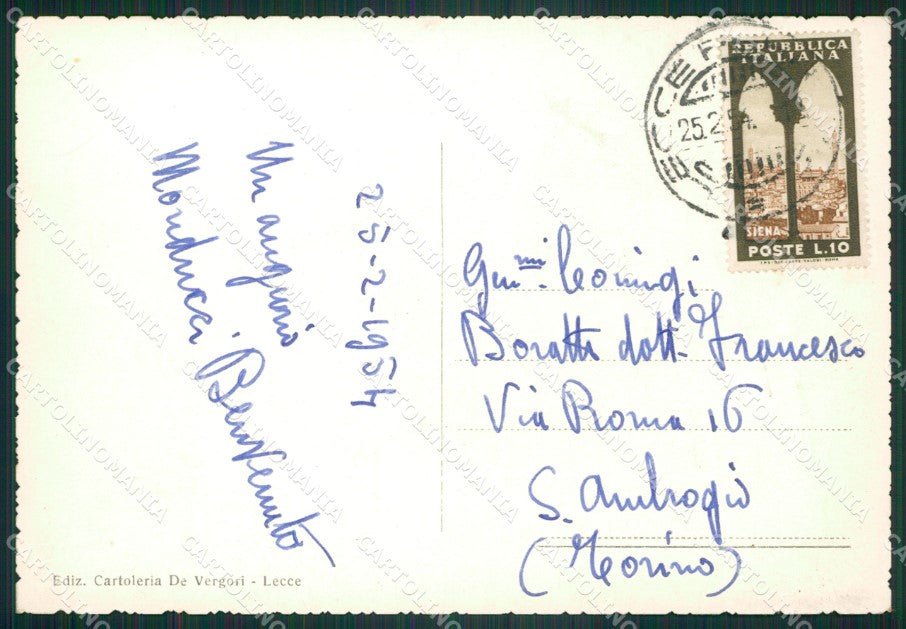 25-2-1954
Un augurio
Monducci Benvenuto
LECCE
25.2.54
REPUBBLICA
ITALIANA
SIENA
POSTE L.10
Gen.mi Coniugi
Boratti dott. Francesco
Via Roma 16
S. Ambrogio
(Torino)
Ediz. Cartoleria De Vergori - Lecce
CARTOLINOMANIA